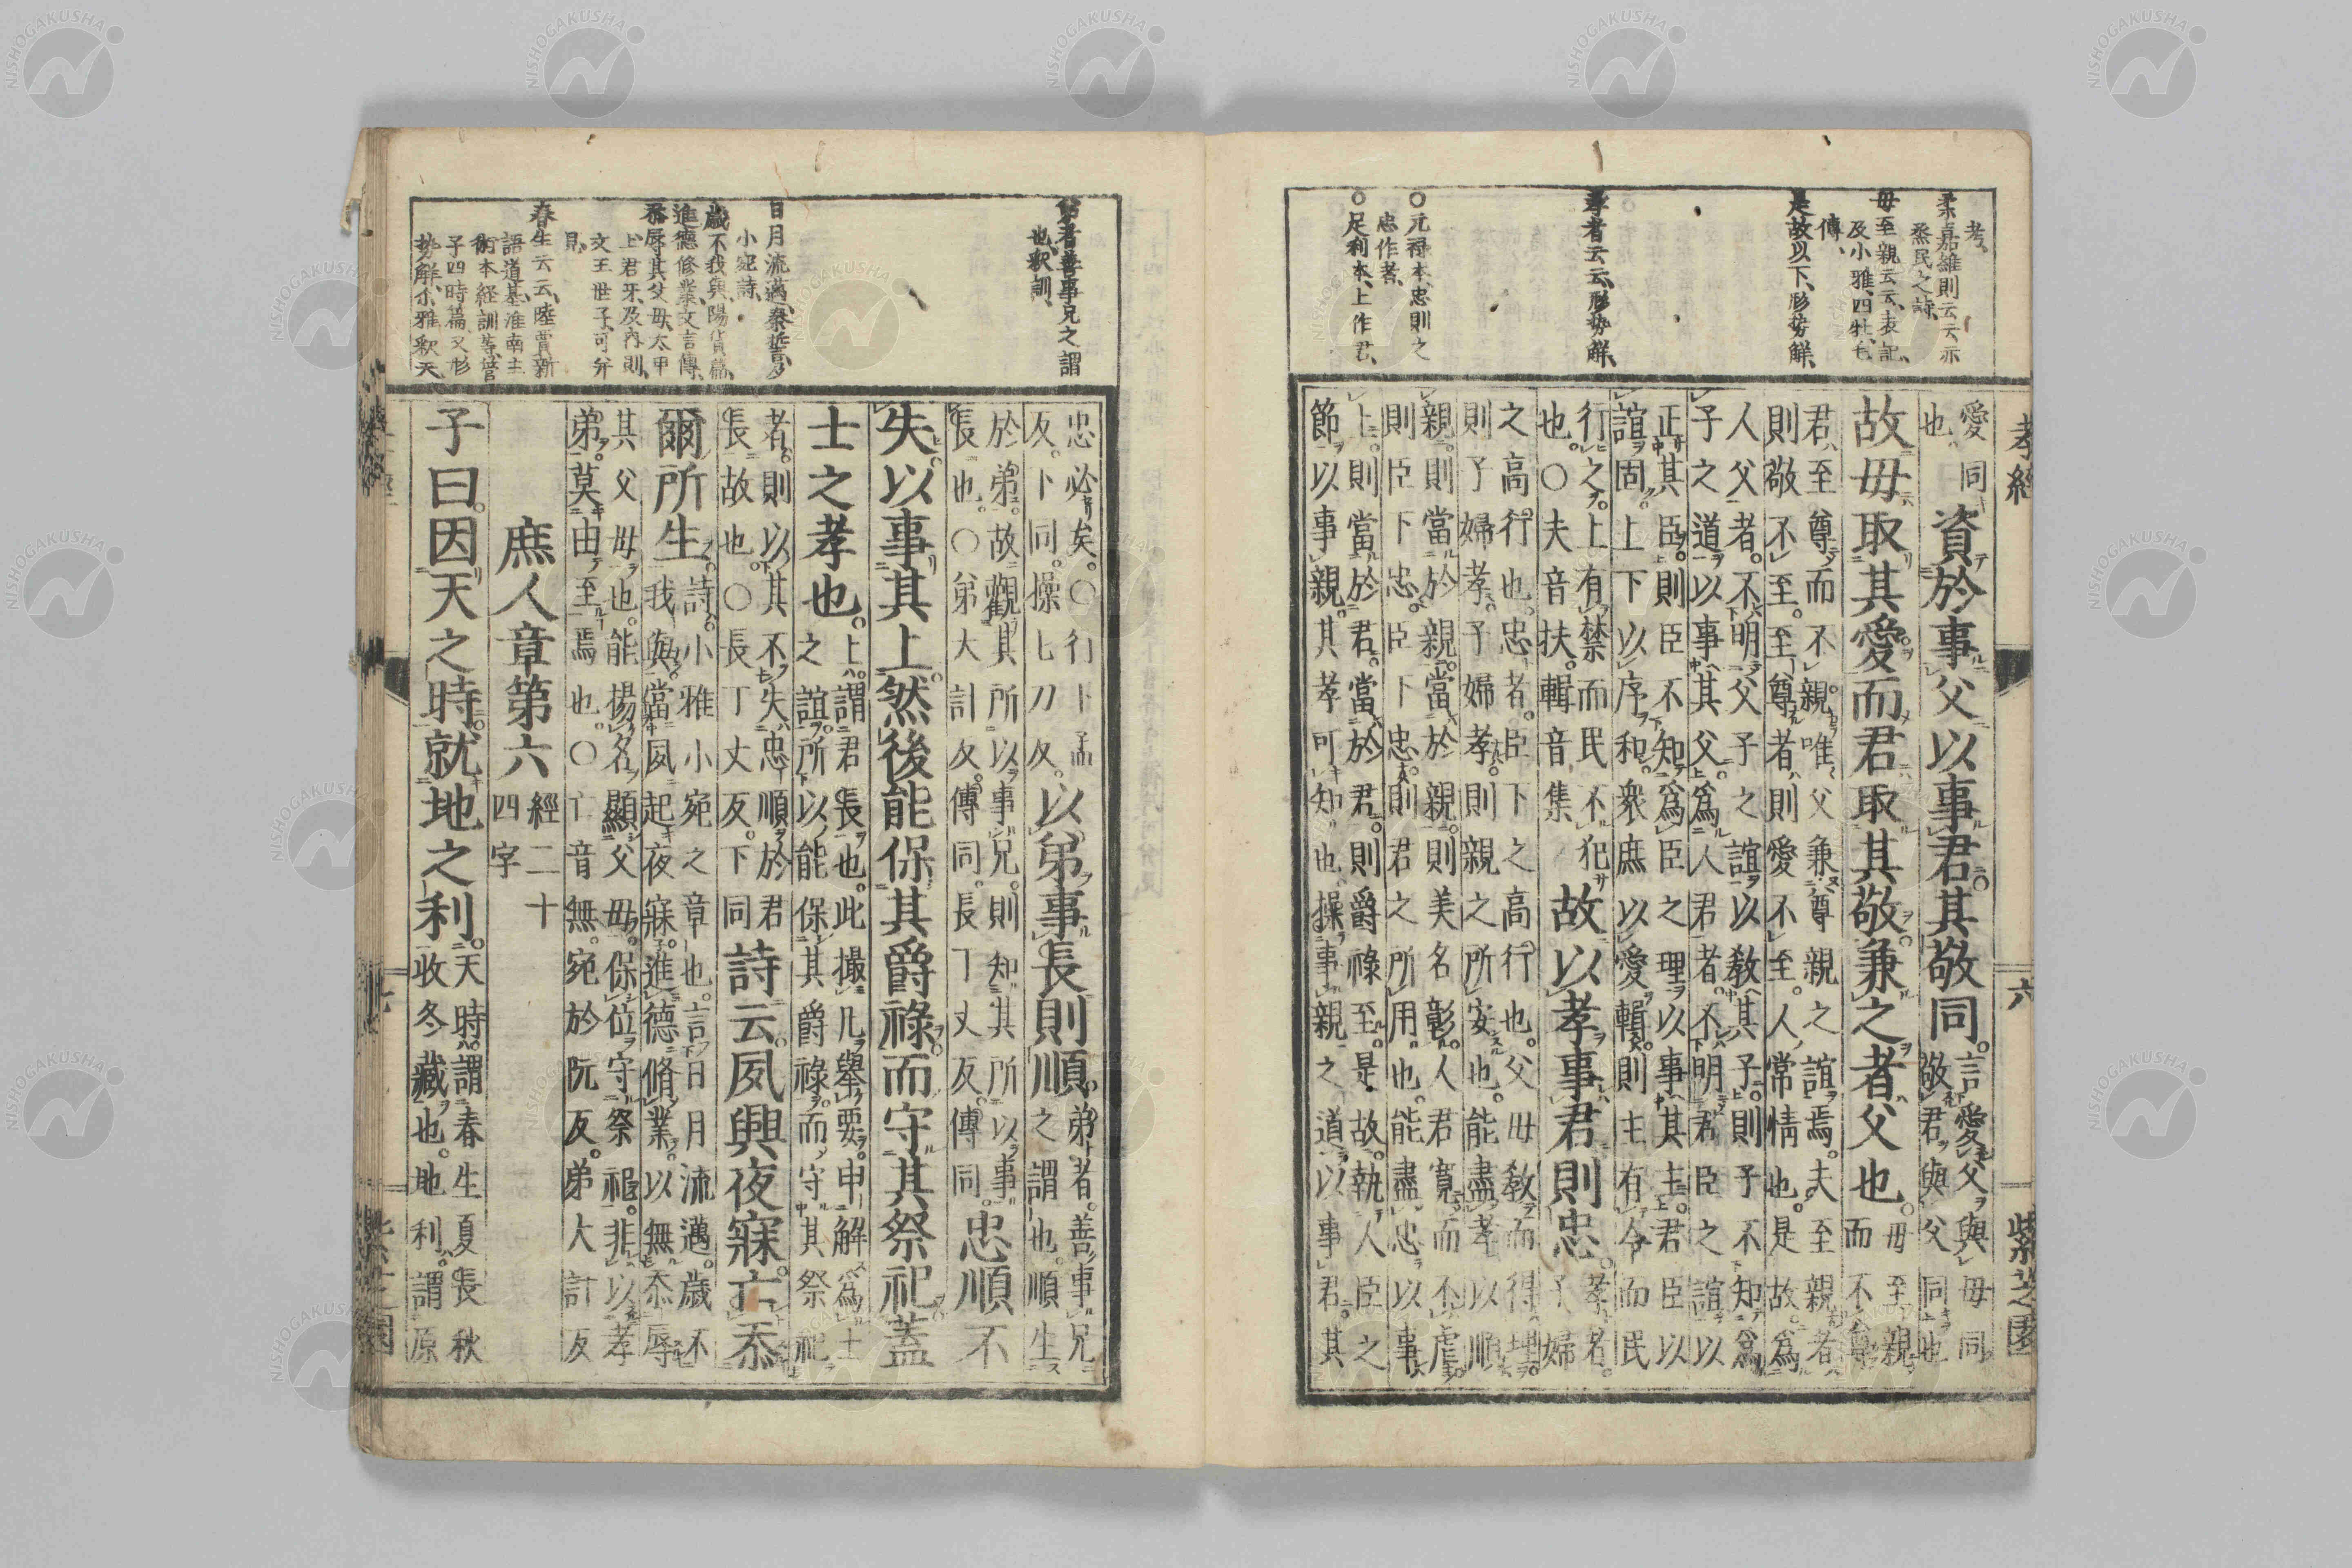 考、
柔嘉維則云云、示
烝民之詩、
母至親云云、表記、
及小雅、四牡、七
傳、
是故以下、形勢解、
孝者云云、形勢解、
○元禄本、忠則之
忠作者、
○足利本、上作君、
孝經
六
紫芝園
愛同
也
資於事父以事君其敬同
言愛父與母同
敬君與父同也
故母取其愛而君取其敬兼之者父也
母至親
而不尊
君至尊而不親唯父兼尊親之誼焉夫至親者
則敬不至至尊者則愛不至人常情也是故爲
人父者不明父子之誼以教其子則子不知爲
子之道以事其父爲人君者不明君臣之誼以
正其臣則臣不知爲臣之理以事其主君臣以
誼固上下以序和衆庶以愛輯則主有令而民
行之上有禁而民不犯
也○夫音扶輯音集
故以孝事君則忠
孝者名
子婦
之高行也忠者臣下之高行也父母教而得理
則子婦孝子婦孝則親之所安也能盡孝以順
親則當於親當於親則美名彰人君寬而不虐
則臣下忠臣下忠則君之所用也能盡忠以事
上則當於君當於君則爵祿至是故執人臣之
節以事親其孝可知也操事親之道以事君其
弟者善事兄之謂
也、釈訓、
日月流邁、秦誓、
小宛詩、
歲不我與、陽貨篇、
進德修業、文言傳、
忝辱其父母、太甲
上、君牙、及內則、
文王世子、可并
見、
春生云云、陸賈新
語道基、淮南主
術、本經訓等、管
子四時篇、又形
勢解、尒雅釈天
忠必矣○行下孟
反下同操七刀反
以弟事長則順
弟者善事兄
之謂也順生
於弟故觀其所以事兄則知其所以事
長也○弟大計反傳同長丁丈反傳同
忠順不
失以事其上然後能保其爵祿而守其祭祀蓋
士之孝也
上謂君長也此撮凡舉要申解爲士
之誼所以能保其爵祿而守其祭祀
者則以其不失忠順於君
長故也○長丁丈反下同
詩云夙興夜寐亡忝
爾所生
詩小雅小宛之章也言日月流邁歲不
我與當夙起夜寐進德脩業以無忝辱
其父母也能揚名顯父母保位守祭祀非以孝
弟莫由至焉也○亡音無宛於阮反弟大計反
庶人章第六
經二十
四字
子曰因天之時就地之利
天時謂春生夏長秋
收冬藏也地利謂原